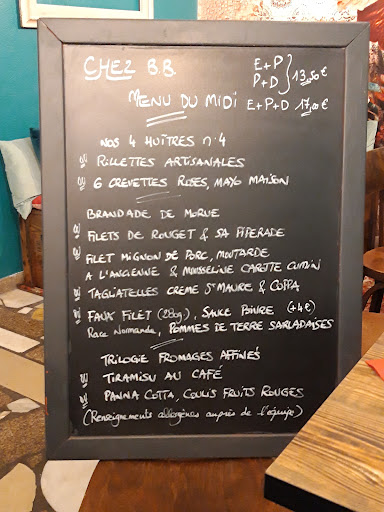 CHEZ B.B.
E+P
P+D } 13,50 €
MENU DU MIDI
E+P+D 17,00 €
NOS 4 HUÎTRES n°4
RILLETTES ARTISANALES
6 CREVETTES ROSES, MAYO MAISON
BRANDADE DE MORUE
FILETS DE ROUGET & SA PIPERADE
FILET MIGNON DE PORC, MOUTARDE
A L'ANCIENNE & MOUSSELINE CAROTTE CUMIN
TAGLIATELLES CREME STE MAURE & COPPA
FAUX FILET (280g), SAUCE POIVRE (+4€)
Race Normande, POMMES DE TERRE SARLADAISES
TRILOGIE FROMAGES AFFINÉS
TIRAMISU AU CAFÉ
PANNA COTTA, COULIS FRUITS ROUGES
(Renseignements allergènes auprès de l'équipe)